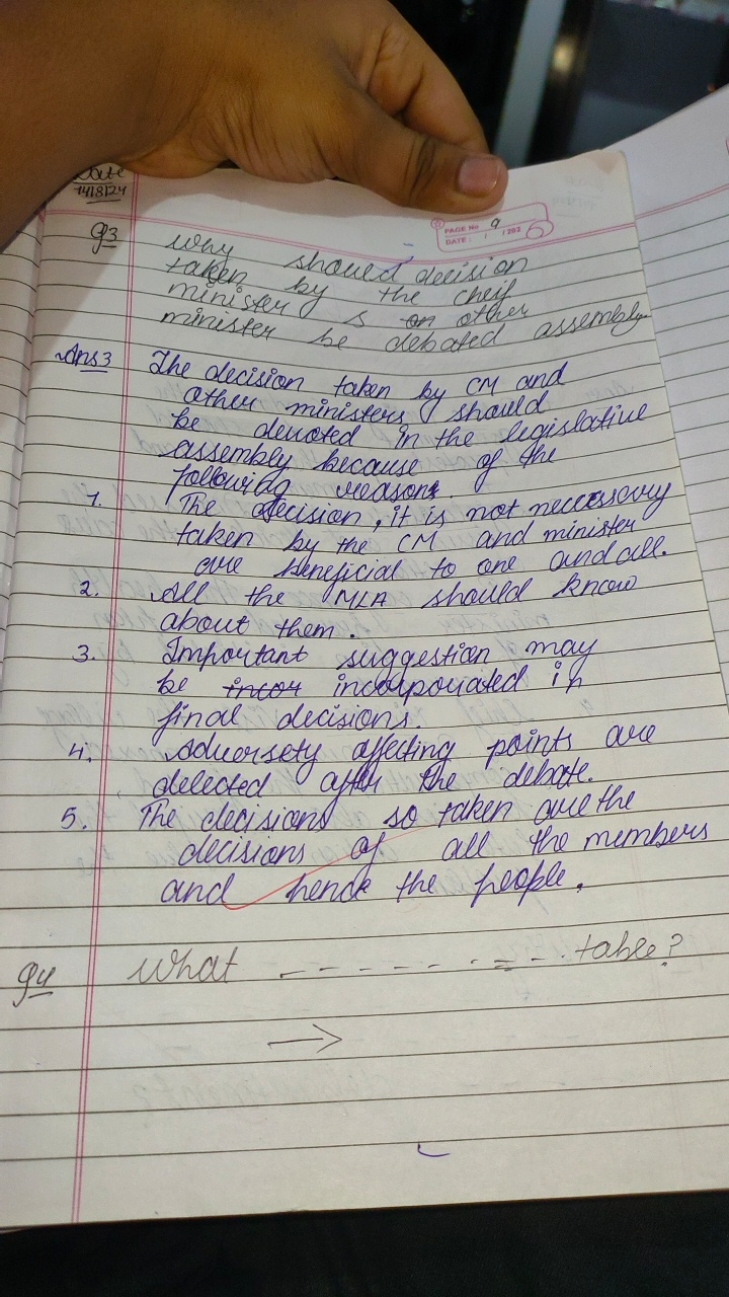 Date
14/8/24
PAGE No 9
DATE : / / 202
Q3 why should decision
taken by the cheif
minister & on other
minister be debated assembly
Ans3 The decision taken by CM and
other ministers should
be devoted in the legislative
assembly because of the
following reasons.
1. The decision, it is not necessary
taken by the CM and minister
are beneficial to one and all.
2. All the MLA should know
about them.
3. Important suggestion may
be incor incorporiated in
final decisions.
4. Adversety affecting points are
delected after the debate.
5. The decisions so taken are the
decisions of all the members
and hence the people.
Q4 What - - - - - - - - - table?